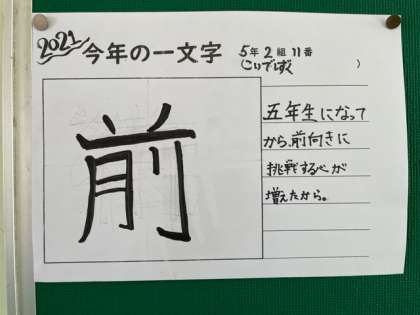 2021
今年の一文字
5年2組11番
)
前
五年生になって
から、前向きに
挑戦する心が
増えたから。